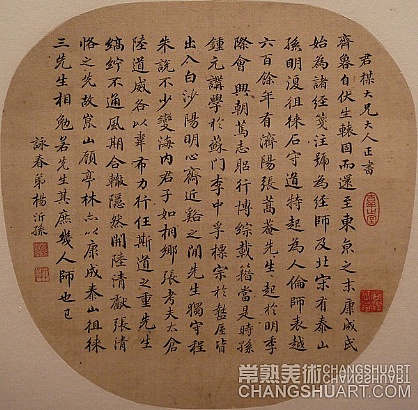 君樸大兄大人正書
齊魯自伏生轅固而還至東京之末康成氏
始為諸經箋注號為經師及北宋有泰山
孫明復徂徠石守道特起為人倫師表越
六百餘年有濟陽張蒿菴先生起於明季
際會興朝篤志躬行博綜載籍當是時孫
鍾元講學於蘇門李中孚標宗於盩厔皆
出入白沙陽明心齋近谿之間先生獨守程
朱說不少變海內君子如桐鄉張考夫太倉
陸道威各以韋布力行任斯道之重先生
縞紵不通風期合轍隱然開陸清獻張清
恪之先故崑山顧亭林亦以康成泰山徂徠
三先生相勉若先生其庶幾人師也已
詠春弟楊沂孫
常熟美術
CHANGSHUART.COM